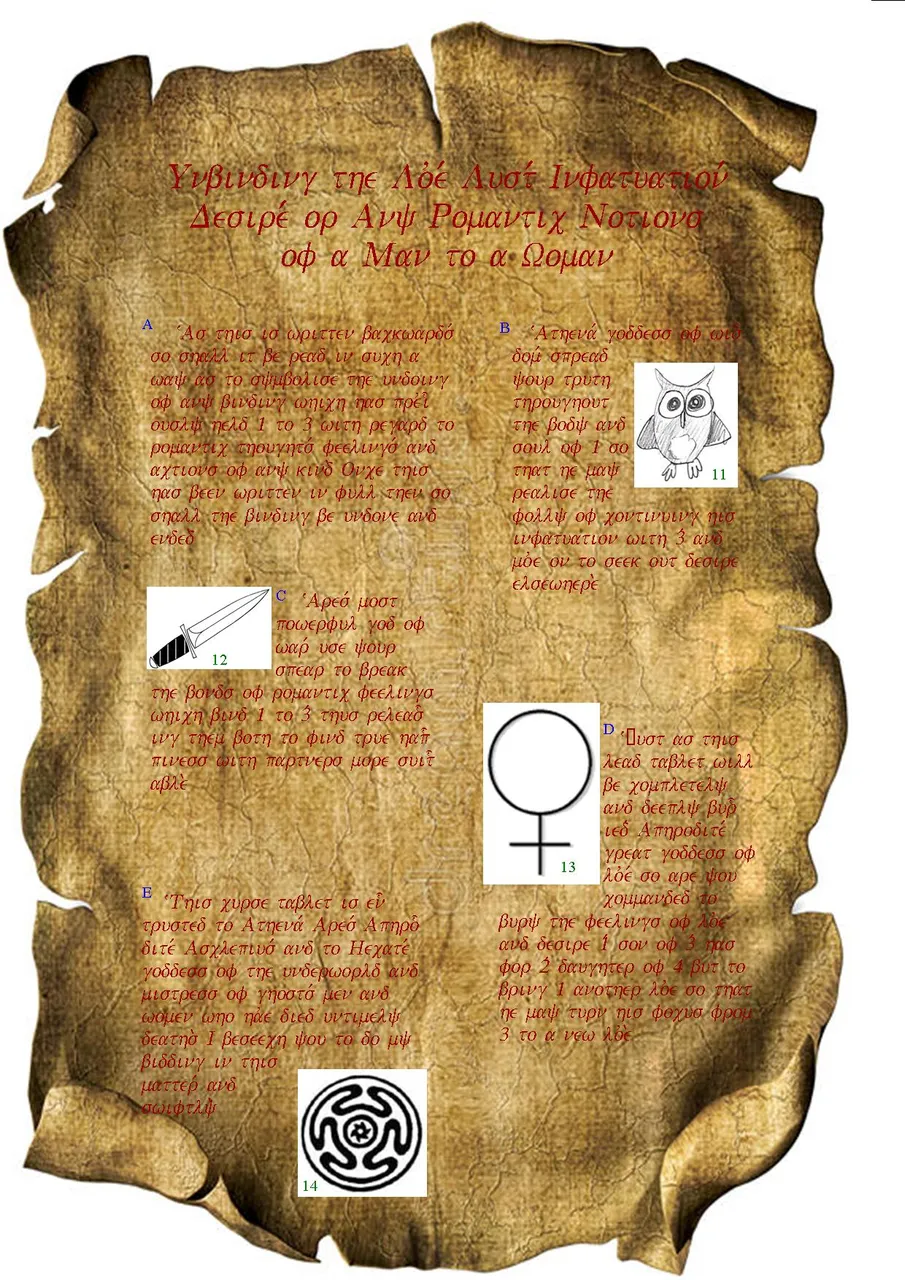 Υνβινδινγ τηε Λὀέ Λυστ́ Ινφατυατιον̔́
Δεσιρέ ορ Ανψ Ρομαντιχ Νοτιονσ
οφ α Μαν το α Ωομαν
A
Ἁσ τηισ ισ ωριττεν βαχκωαρδσ́
σο σηαλλ ιτ βε ρεαδ ιν συχη α
ωαψ ασ το σψμβολισε τηε υνδοινγ
οφ ανψ βινδινγ ωηιχη ηασ πρέῒ
ουσλψ ηελδ 1 το 3 ωιτη ρεγαρδ το
ρομαντιχ τηουγητσ́ φεελινγσ́ ανδ
αχτιονσ οφ ανψ κινδ̀ Ονχε τηισ
ηασ βεεν ωριττεν ιν φυλλ τηεν σο
σηαλλ τηε βινδινγ βε υνδονε ανδ
ενδεδ̀
B
Ἁτηενά γοδδεσσ οφ ωισ̈
δομ́ σπρεαδ
ψουρ τρυτη
τηρουγηουτ
τηε βοδψ ανδ
σουλ οφ 1 σο
τηατ ηε μαψ
ρεαλισε τηε
φολλψ οφ χοντινυινγ ηισ
ινφατυατιον ωιτη 3́ ανδ
μὀε ον το σεεκ ουτ δεσιρε
ελσεωηερὲ
11
12
C
Ἁρεσ́ μοστ
ποωερφυλ γοδ οφ
ωαρ́ υσε ψουρ
σπεαρ το βρεακ
τηε βονδσ οφ ρομαντιχ φεελινγσ
ωηιχη βινδ 1 το 3́ τηυσ ρελεασ̈
ινγ τηεμ βοτη το φινδ τρυε ηαπ̈
πινεσσ ωιτη παρτνερσ μορε συιτ̈
αβλὲ
13
D
Ὁυστ ασ τηισ
λεαδ ταβλετ ωιλλ
βε χομπλετελψ
ανδ δεεπλψ βυρ̈
ιεδ́ Απηροδιτέ
γρεατ γοδδεσσ οφ
λὀέ σο αρε ψου
χομμανδεδ το
βυρψ τηε φεελινγσ οφ λὀε
ανδ δεσιρε 1́ σον οφ 3́ ηασ
φορ 2́ δαυγητερ οφ 4́ βυτ το
βρινγ 1 ανοτηερ λὀε σο τηατ
ηε μαψ τυρν ηισ φοχυσ φρομ
3 το α νεω λὀὲ
E
Ἱτηισ χυρσε ταβλετ ισ εν̈
τρυστεδ το Ατηενά Αρεσ́ Απηρο̈
διτέ Ασχλεπιυσ́ ανδ το Ηεχατέ
γοδδεσσ οφ τηε υνδερωορλδ ανδ
μιστρεσσ οφ γηοστσ́ μεν ανδ
ωομεν ωηο ηἀε διεδ υντιμελψ
δεατησ̀ Ι βεσεεχη ψου το δο μψ
βιδδινγ ιν τηισ
ματτερ́ ανδ
σωιφτλψ̀
14